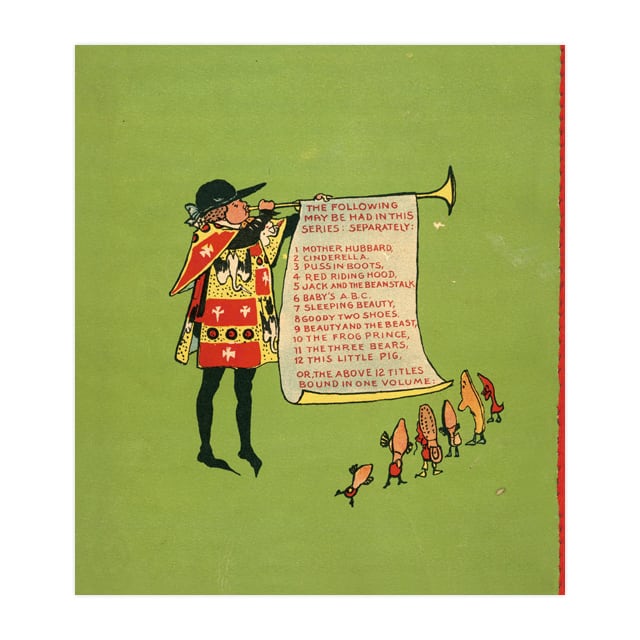 THE FOLLOWING
MAY BE HAD IN THIS
SERIES: SEPARATELY:
1 MOTHER HUBBARD,
2 CINDERELLA.
3 PUSS IN BOOTS,
4 RED RIDING HOOD,
5 JACK AND THE BEANSTALK
6 BABY'S A.B.C.
7 SLEEPING BEAUTY,
8 GOODY TWO SHOES.
9 BEAUTY AND THE BEAST,
10 THE FROG PRINCE,
11 THE THREE BEARS,
12 THIS LITTLE PIG,
OR, THE ABOVE 12 TITLES
BOUND IN ONE VOLUME: